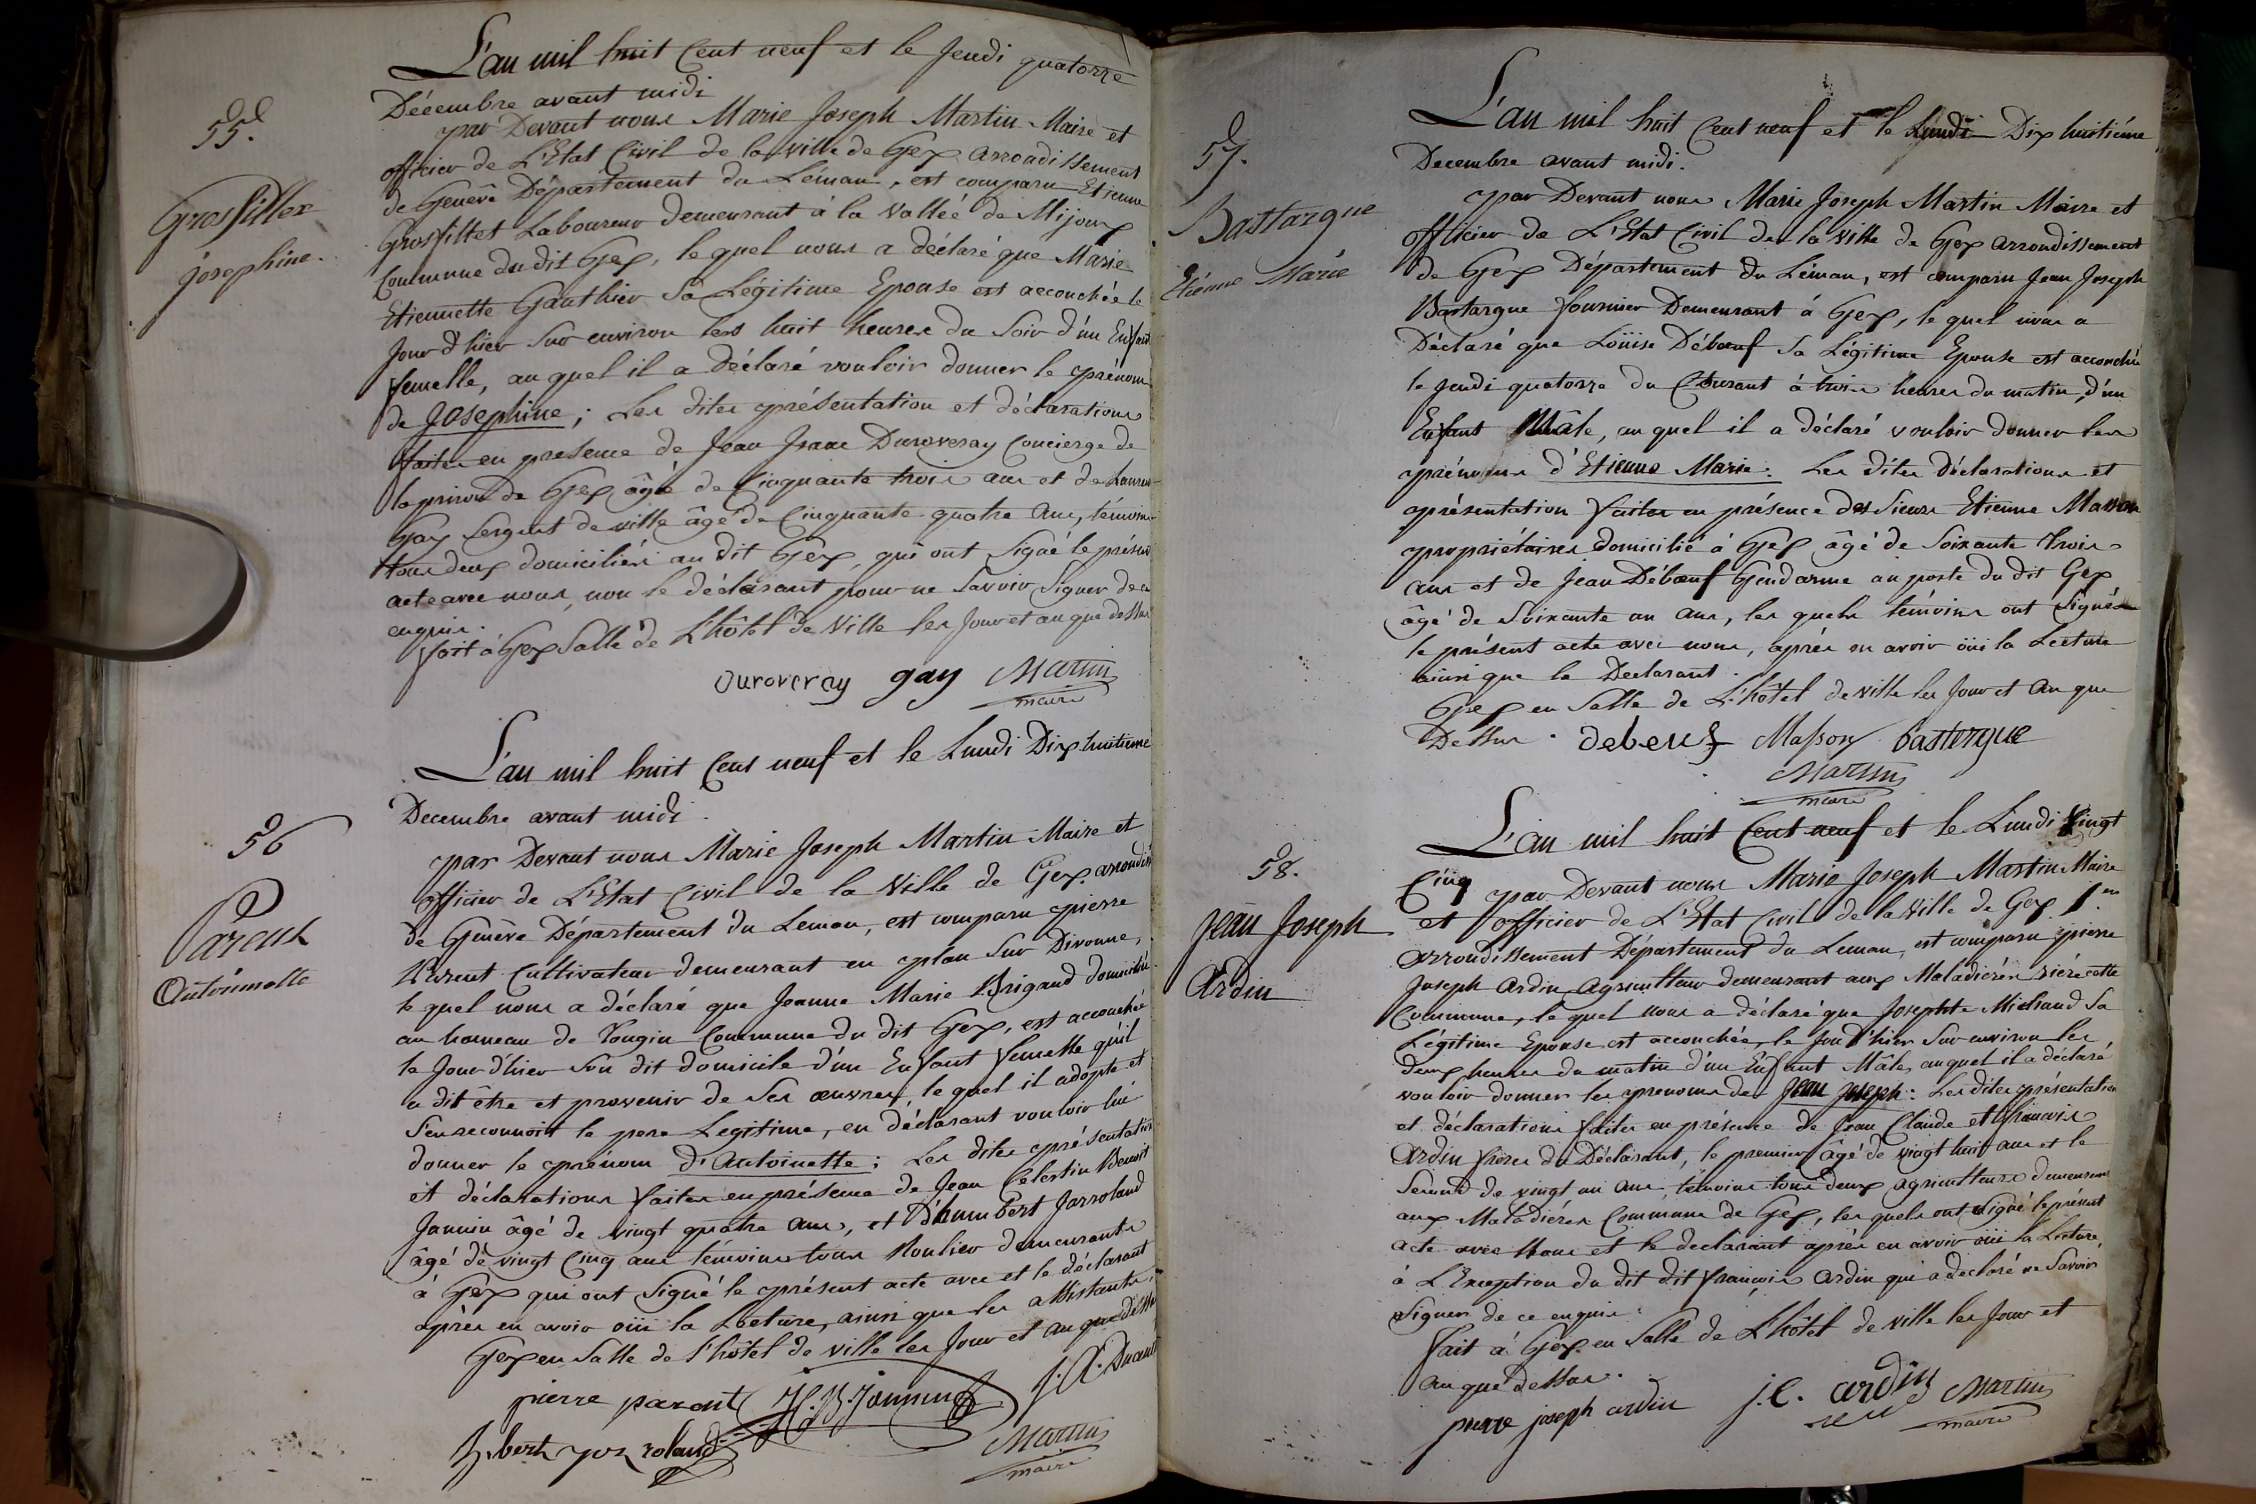 55.
Grosfillex
josephine.
L'an mil huit Cent neuf et le Jeudi quatorze
Décembre avant midi
par Devant nous Marie Joseph Martin Maire et
officier de L'Etat Civil de la ville de Gex arrondissement
de Genève Département du Léman, est comparu Etienne
Grosfillet Laboureur demeurant à la Vallée de Mijoux
Commune du dit Gex, le quel nous a déclaré que Marie
Etiennette Gauthier Sa Légitime Epouse est accouchée le
Jour d'hier Sur environ les huit heures du Soir d'un Enfant
femelle, au quel il a Déclaré vouloir donner le prénom
de Josephine; Les dites présentation et déclarations
faites en presence de Jean Isaac Duroveray Concierge de
la prison de Gex âgé de Cinquante trois ans et de Laurent
Gay Sergent de ville âgé de Cinquante quatre Ans, témoins
tous deux domiciliés au dit Gex, qui ont Signé le présent
acte avec nous, non le déclarant pour ne Savoir Signer de ce
enquis.
fait à Gex Salle de L'hôtel de Ville les Jour et an que dessus
Duroveray gay Martin
maire
56
Parent
Antoinette
L'an mil huit Cent neuf et le Lundi Dix huitieme
Decembre avant midi.
par Devant nous Marie Joseph Martin Maire et
officier de L'Etat Civil de la Ville de Gex arrondist
de Genève Département du Leman, est comparu pierre
Parent Cultivateur demeurant en plan Sur Divonne,
le quel nous a déclaré que Jeanne Marie Brigand domiciliée
au hameau de Tougin Commune du dit Gex, est accouchée
le Jour d'hier Son dit domicile d'un Enfant femelle qu'il
a dit être et provenir de Ses œuvres, le quel il adopte et
S'en reconnoit le pere Legitime, en déclarant vouloir lui
donner le prénom d'Antoinette; Les dites présentation
et déclarations faites en présence de Jean Celestin Benoit
Janin âgé de vingt quatre ans, et D'humbert Jarroland
âgé de vingt Cinq ans témoins tous Roulier demeurants
à Gex qui ont Signé le présent acte avec et le déclarant
après en avoir oüi la Lecture, ainsi que les assistants,
Gex en Salle de l'hôtel de ville les Jour et an que dessus
pierre parent
Martin
maire
57.
Bastargue
Etienne Marie
L'an mil huit Cent neuf et le Lundi Dix huitiéme
Decembre avant midi.
par Devant nous Marie Joseph Martin Maire et
officier de L'Etat Civil de la Ville de Gex arrondissement
de Gex Département du Léman, est comparu Jean Joseph
Bastargue fournier Demeurant à Gex, le quel nous a
Déclaré que Loüise Débœuf Sa Légitime Epouse est accouchée
le Jeudi quatorze du Courant à trois heures du matin, d'un
Enfant Mâle, au quel il a déclaré vouloir donner les
prénoms d'Etienne Marie: Les dites Déclarations et
présentation faites en présence des Sieurs Etienne Masson
propriétaires domicilié à Gex âgé de Soixante trois
ans et de Jean Débœuf Gendarme au poste du dit Gex
âgé de Soixante un ans, les quels témoins ont Signé
le présent acte avec nous, après en avoir oüi la Lecture
ainsi que le Declarant.
Gex en Salle de L'hôtel de ville les Jour et An que
Dessus. debeuf Masson bastergue
Martin
maire
58.
Jean Joseph
Ardin
L'an mil huit Cent neuf et le Lundi Vingt
Cinq par Devant nous Marie Joseph Martin Maire
et officier de L'Etat Civil de la Ville de Gex 1.er
arrondissement Département du Leman, est comparu pierre
Joseph Ardin Agriculteur demeurant aux Maladières rière cette
Commune, le quel nous a déclaré que Josephte Michaud Sa
Légitime Epouse est accouchée, le Jour d'hier Sur environ les
deux heures du matin d'un Enfant Mâle, au quel il a déclaré
vouloir donner les prenoms de Jean Joseph: Les dites présentation
et déclarations faites en présence de Jean Claude et françois
Ardin frères du Déclarant, le premier âgé de vingt huit ans et le
Second de vingt un ans, témoins tous deux agriculteurs demeurant
aux Maladières Commune de Gex, les quels ont Signé le présent
acte avec Nous et le declarant après en avoir oüi la Lecture,
à L'Exception du dit dit françois Ardin qui a declaré ne Savoir
Signer de ce enquis:
fait à Gex en Salle de L'hôtel de ville les Jour et
an que dessus.
pierre joseph ardin j. C. ardin Martin
maire